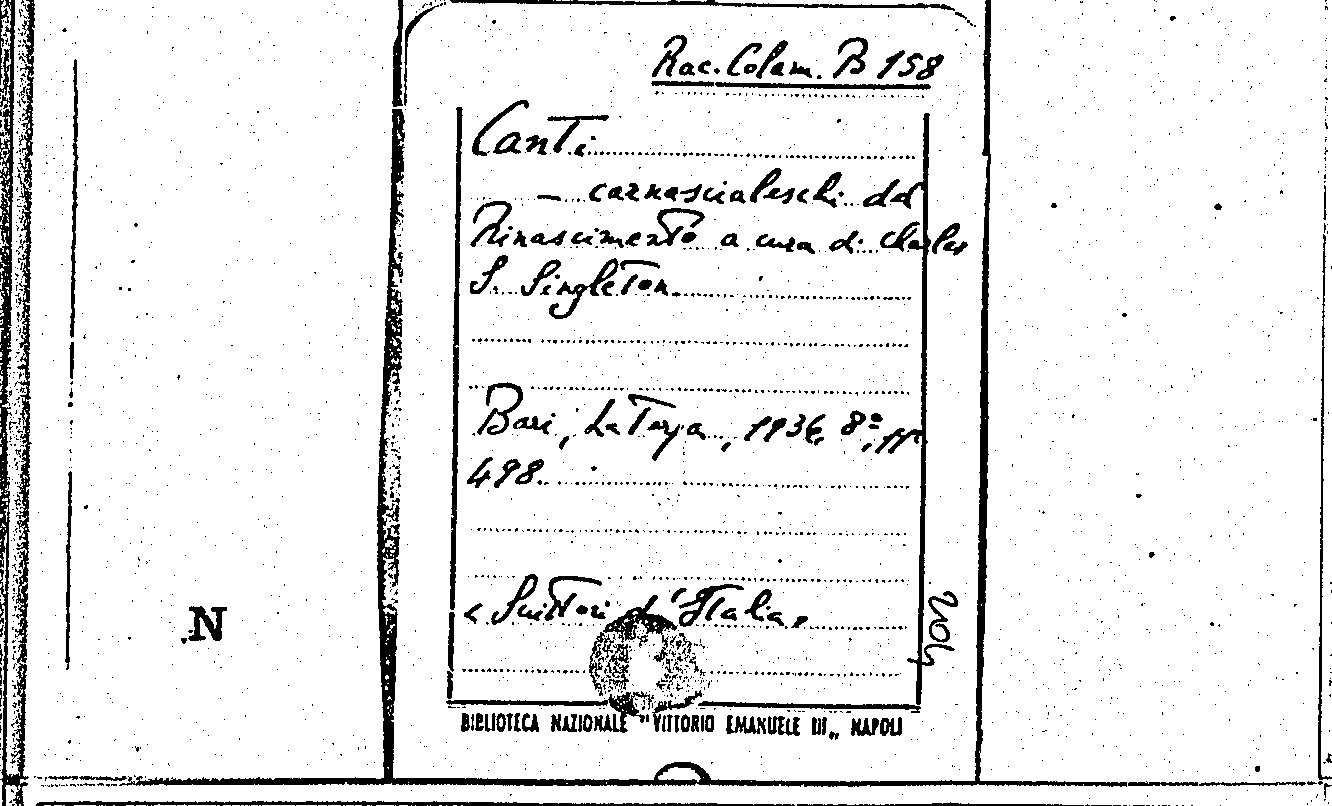 Rac. Colam. B 158
Canti
— carnascialeschi del
Rinascimento a cura di Charles
S. Singleton.
Bari, Laterza, 1936, 8º, pp.
498.
« Scrittori d'Italia »
204
N
BIBLIOTECA NAZIONALE "VITTORIO EMANUELE III„ NAPOLI